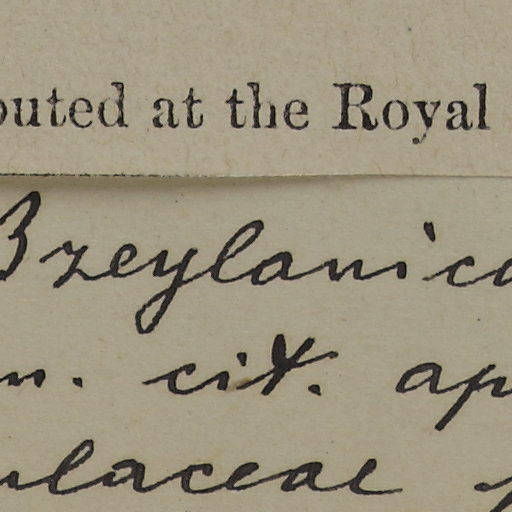 outed at the Royal
B zeylanica
m. cit. ap
ulaceae